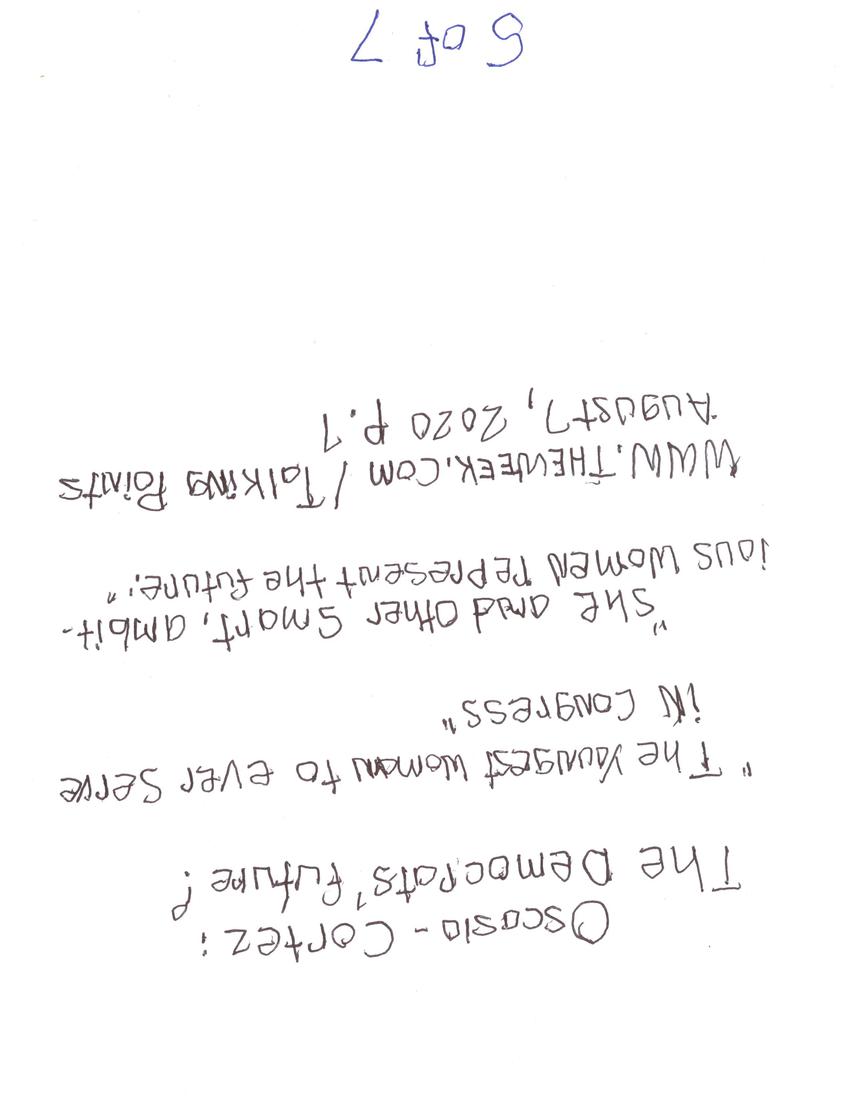 Oscasio-Cortez:
The Democrats' future?
"The Youngest woman to ever serve
in Congress"
"She and other smart, ambit-
ious women represent the future."
WWW.THEWEEK.COM / Talking Points
August 7, 2020 p.1
5 of 7